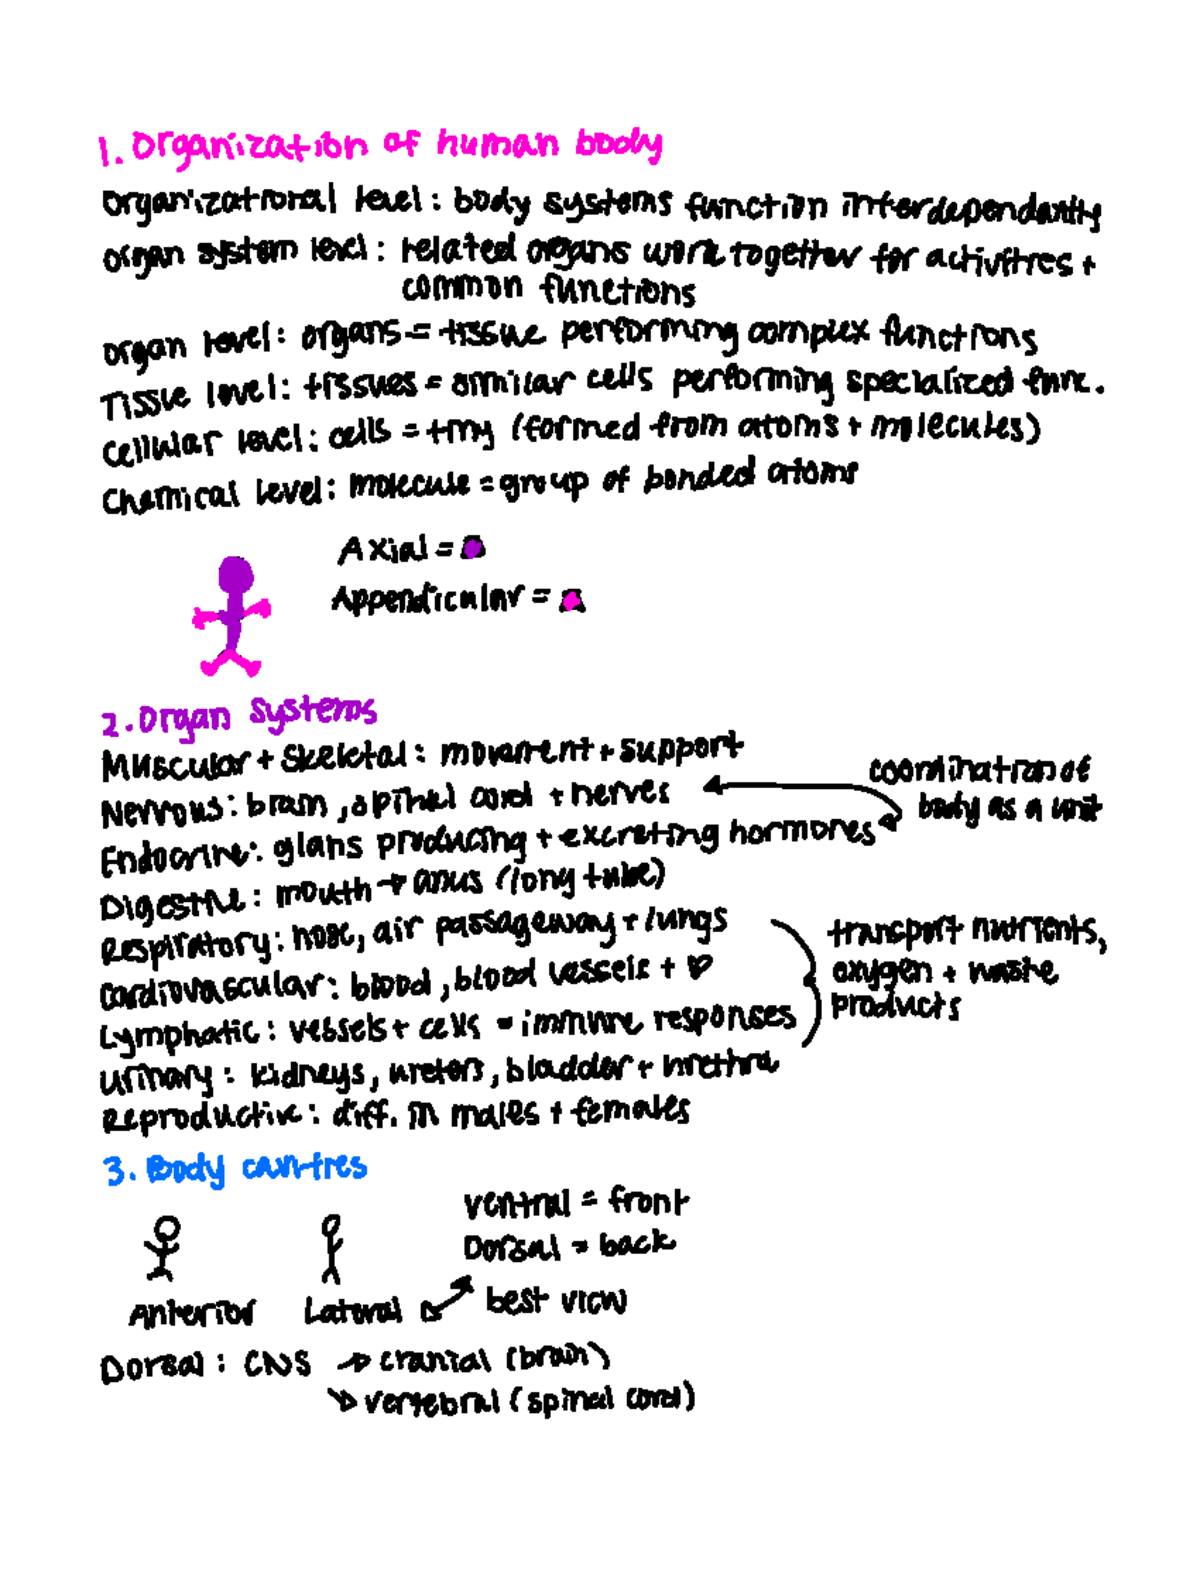 1. Organization of human body
Organizational level: body systems function interdependantly
organ system level: related organs work together for activities +
common functions
organ level: organs = tissue performing complex functions
Tissue level: tissues = similar cells performing specialized func.
Cellular level: cells = tiny (formed from atoms + molecules)
Chemical level: molecule = group of bonded atoms
Axial =
Appendicular =
2. Organ Systems
Muscular + Skeletal: movement + support
Nervous: brain, spinal cord + nerves
coordination of
body as a unit
Endocrine: glans producing + excreting hormones
Digestive: mouth → anus (long tube)
Respiratory: nose, air passageway + lungs
transport nutrients,
oxygen + waste
products
Cardiovascular: blood, blood vessels + ♡
Lymphatic: vessels + cells = immune responses
Urinary: kidneys, uretors, bladder + urethra
Reproductive: diff. in males + females
3. Body cavities
ventral = front
Dorsal = back
Anterior
Lateral
best view
Dorsal: CNS → cranial (brain)
→ vertebral (spinal cord)